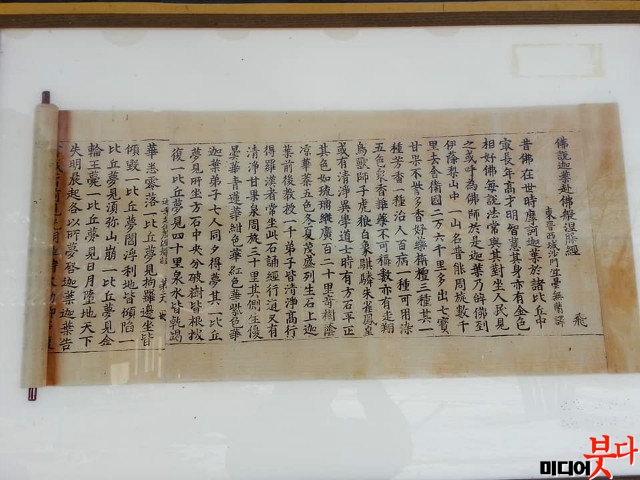 佛說迦葉赴佛般涅槃經
東晉西域沙門竺曇無蘭譯 飛
昔佛在世時摩訶迦葉於諸比丘中
最長年高才明智慧其身亦有金色
相好佛每說法常與其對坐人民見
之或呼為佛師於是迦葉乃辭佛到
伊蓩梨山中一山名普能周旋數千
里去舍衛國二万六千里多出七寶
甘果不訾多香好藥栴檀三種其一
種芳香一種治人百病一種可用染
五色衆香雜藥不可稱數亦有走翔
鳥獸師子虎狼白象騏驎朱雀鳳皇
或有清淨異學道士時有方石平正
其色如琉璃縱廣百二十里奇樹蔭
涼華葉五色冬夏茂盛列生石上迦
葉前後教授一千弟子皆清淨高行
得羅漢者常坐此石誦經行道又有
清淨甘果泉周旋三十里其側生優
曇華青蓮華紺色華紅色華紫色華
迦葉弟子七人同夕得夢其一比丘
夢見所坐方石中央分破樹皆根拔
復一比丘夢見四十里泉水皆乾竭
華悉零落一比丘夢見拘羅邊坐皆
傾毀一比丘夢閻浮利地皆傾陷一
比丘夢見須弥山崩一比丘夢見金
輪王薨一比丘夢見日月墮地天下
失明晨起各以所夢啓迦葉迦葉告
미디어붓다